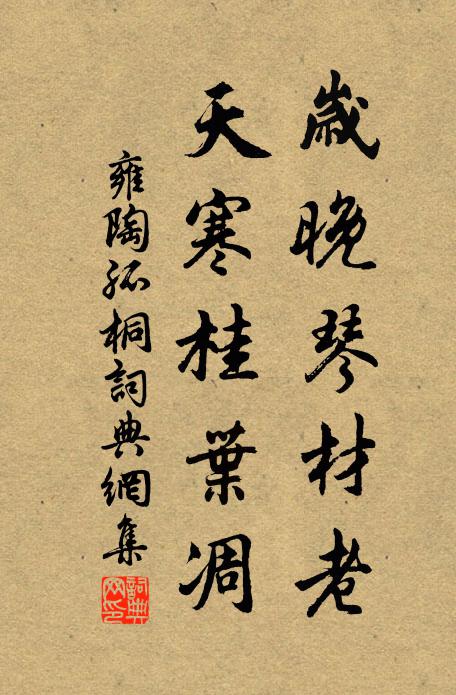 歲晚琴材老
天寒桂葉凋
雍陶孤桐詞典網集
詞典網印